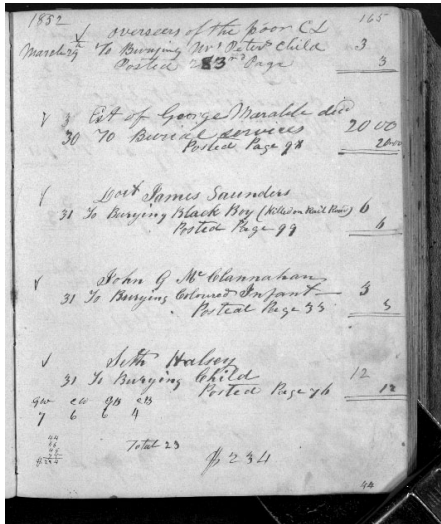 1852 165
overseers of the poor CL
March 29 To Burying Child 3
Posted 283 Page 3
Est of George Marable decd
30 To Burial services 20 00
Posted Page 98 20 00
Doct James Saunders
31 To Burying Black Boy (Killed on Rail Road) 6
Posted Page 99 6
John G McClannahan
31 To Burying Coloured Infant 3
Posted Page 33 3
Seth Halsey
31 To Burying Child 12
Posted Page 76 12
gw cw cB
7 6 6 4
Total 23
$234
44